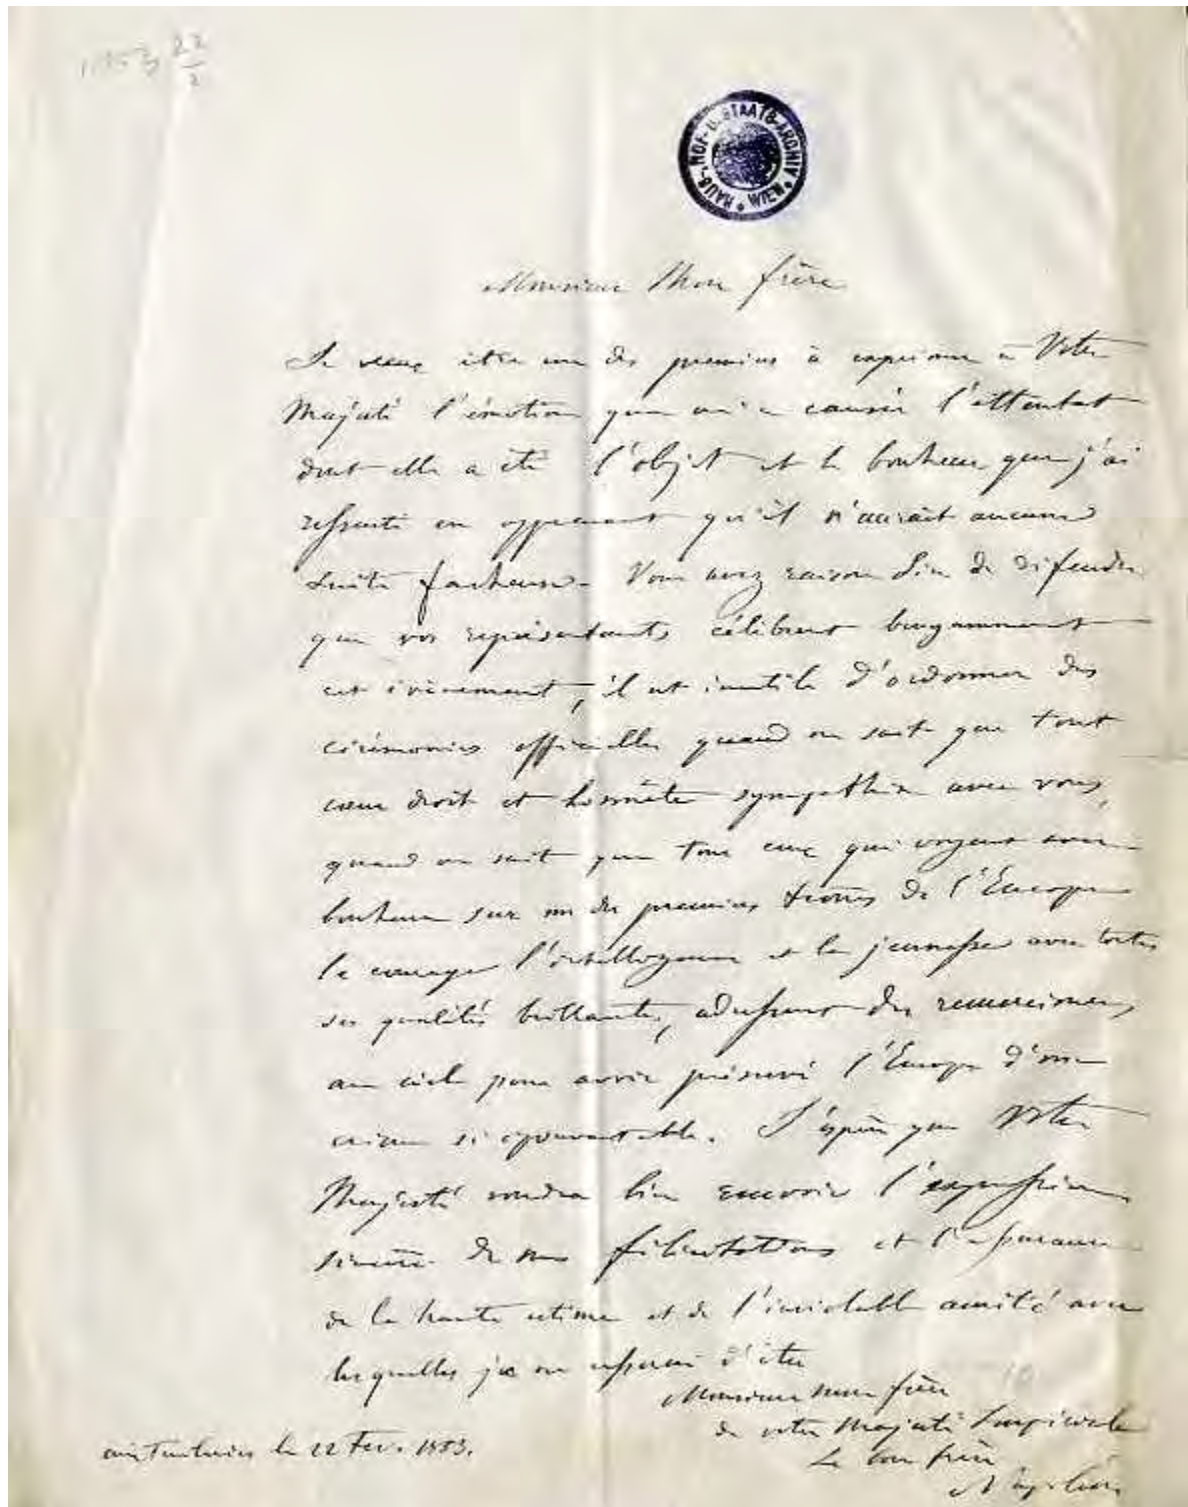 1853 22/2
HAUS-, HOF- U. STAATS-ARCHIV * WIEN *
Monsieur Mon frère
Je veux être un des premiers à exprimer à Votre
Majesté l'émotion que m'a causée l'attentat
dont elle a été l'objet et le bonheur que j'ai
ressenti en apprenant qu'il n'aurait aucune
suite facheuse. Vous avez raison Sire de défendre
que vos représentants célèbrent bruyamment
cet évènement, il est inutile d'ordonner des
cérémonies officielles quand on sait que tout
cœur droit et honnête sympathise avec vous,
quand on sait que tous ceux qui voyent avec
bonheur sur un des premiers trônes de l'Europe
le courage l'intelligence et la jeunesse avec toutes
ses qualités brillantes, adressent des remerciemens
au ciel pour avoir préservé l'Europe d'un
crime si épouvantable. J'espère que Votre
Majesté voudra bien recevoir l'expression
sincère de mes félicitations et l'assurance
de la haute estime et de l'inviolable amitié avec
lesquelles je ne cesserai d'être
Monsieur mon frère
de votre Majesté Impériale
Le bon frère
Napoléon
aux Tuileries le 22 Fev. 1853.